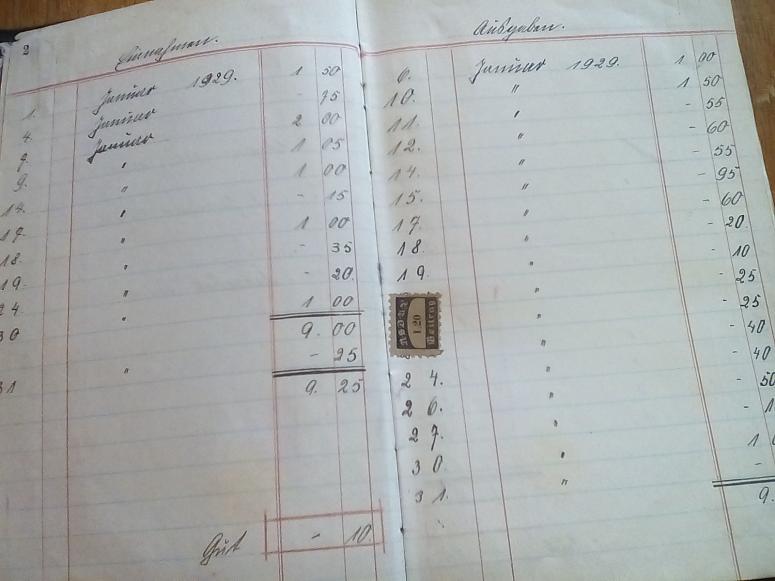 2
Einnahmen.
Januar 1929. 1 50
1. Januar - 75
4. Januar 2 00
7. " 1 05
9. " 1 00
14. " - 15
17. " 1 00
18. " - 35
19. " - 20
24. " 1 00
30 9.00
- 25
31 " 9. 25
Gut - 10
Ausgaben.
6. Januar 1929. 1 00
10. " 1 50
11. " - 55
12. " - 60
14. " - 55
15. " - 95
17. " - 60
18. " - 20
19. " - 10
" - 25
" - 25
NSDAP
1.20
Beitrag
" - 40
24. " - 40
26. " - 50
27. "
30. "
31. "
9.